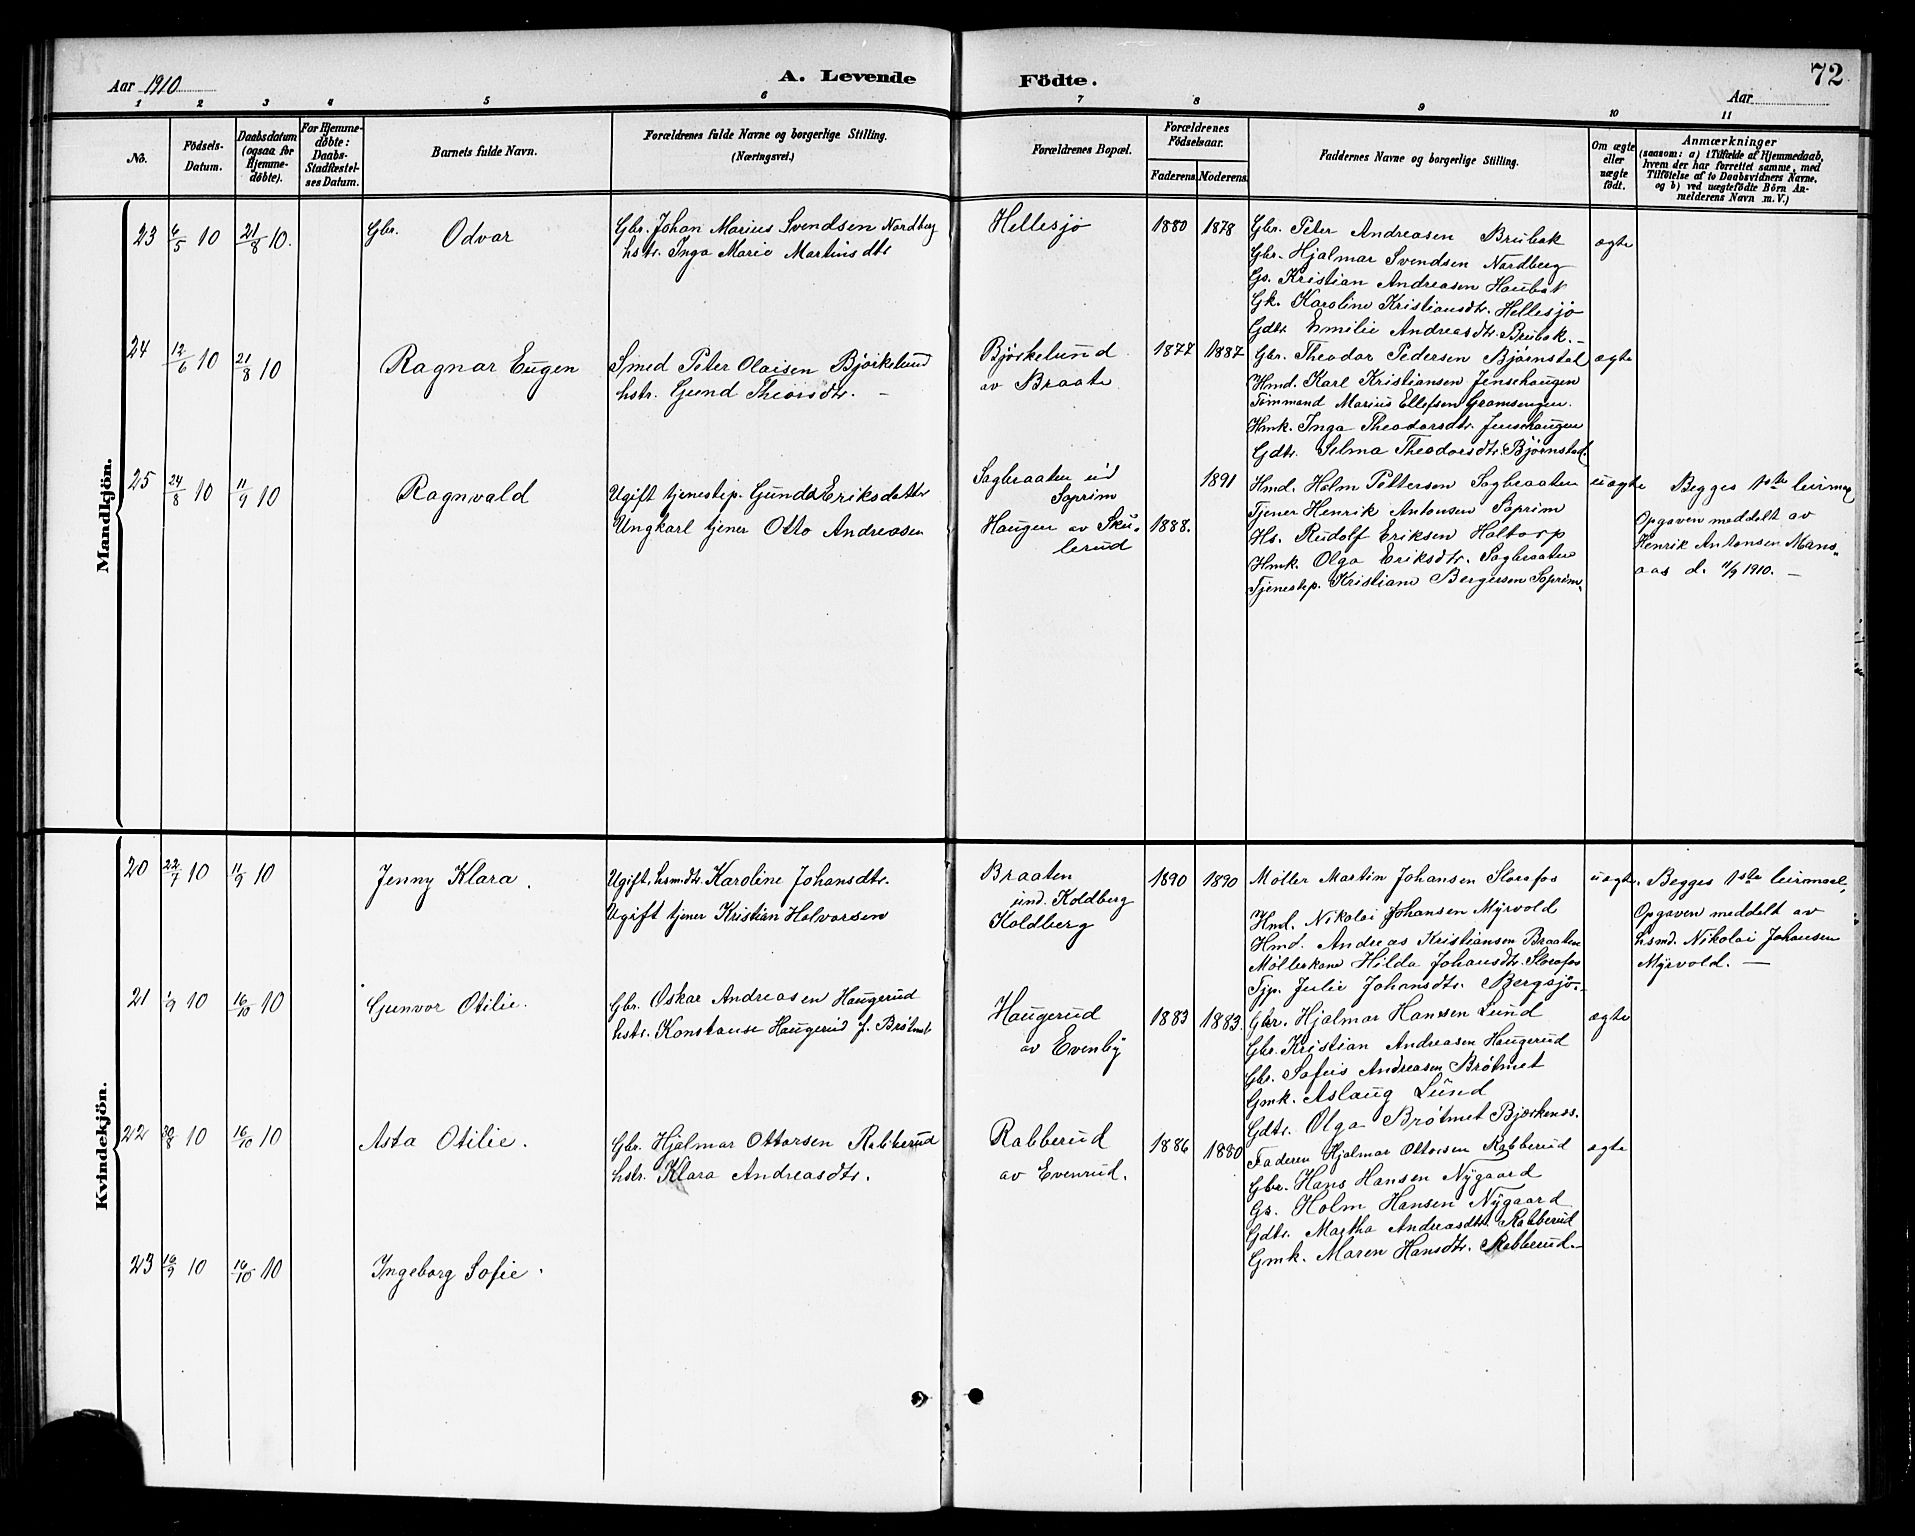 Aar 1910
A. Levende
Födte.
72
Aar
1 2 3 4 5 6 7 8 9 10 11
No.
Födsels-
Datum.
Daabsdatum
(ogsaa for
Hjemme-
døbte).
For Hjemme-
døbte:
Daabs-
Stadfæstel-
ses Datum.
Barnets fulde Navn.
Forældrenes fulde Navne og borgerlige Stilling.
(Næringsvei.)
Forældrenes Bopæl.
Forældrenes
Födselsaar.
Faderens. Moderens.
Faddernes Navne og borgerlige Stilling.
Om ægte
eller
uægte
født.
Anmærkninger
(saasom: a) i Tilfælde af Hjemmedaab,
hvem der har forrettet samme, med
Tilføielse af to Daabsvidners Navne,
og b) ved uægtefödte Börn An-
melderens Navn m. V.)
Mandkjön.
23 6/5 10 21/8 10. Gbr. Odvar
Gbr. Johan Marius Svendsen Nordberg
hstr. Inga Marie Martinsdtr
Hellesjø
1880 1878
Gbr. Peter Andreasen Brubak
Gbr. Hjalmar Svendsen Nordberg
Gs. Kristian Andreasen Haubak
Gk. Karoline Kristiansdtr. Hellesjø
Gdtr. Emilie Andreasdtr. Brubak.
ægte
24 12/6 10 21/8 10 Ragnar Eugen
Smed Peter Olaisen Bjørkelund
hstr. Gund Theorsdtr.
Bjørkelund
av Braate
1877 1887
Gbr. Theodor Pedersen Bjørnstad
Hmd. Karl Kristiansen Jenshaugen
Tømmand Marius Ellefsen Gromsengen.
Hmk. Inga Theodorsdtr. Jenshaugen
Gdtr. Selma Theodorsdtr. Bjørnstad.
ægte
25 24/8 10 11/9 10 Ragnvald
Ugift tjenestep. Gunda Eriksdatter
Ungkarl tjener Otto Andreasen
Sagbraaten ud
Soprim
Haugen av Sku-
lerud
1891
1888.
Hmd. Holm Pettersen Sagbraaten
Tjener Henrik Antonsen Soprim
Hs. Rudolf Eriksen Haltorp
Hmk. Olga Eriksdtr. Sagbraaten
Tjenestep. Kristiane Bergersen Soprim.
uægte
Begges 1ste leirmaal
Opgaven meddelt av
Henrik Antonsen Mons-
aas d. 11/9 1910. —
Kvindekjön.
20 22/7 10 11/9 10 Jenny Klara.
Ugift, hsm.dtr. Karoline Johansdtr.
Ugift tjener Kristian Halvorsen
Braaten
und. Koldberg
Koldberg
1890 1890
Møller Martin Johansen Slorafos
Hmd. Nikolai Johansen Myrvold
Hmd. Andreas Kristiansen Braaten
Møllerkone Hilda Johansdtr. Slorafos
Tjp. Julie Johansdtr. Bergsjø.
uægte.
Begges 1ste leirmaal.
Opgaven meddelt av
hsmd. Nikolai Johansen
Myrvold. —
21 1/9 10 16/10 10 Gunvor Otilie.
Gbr. Oskar Andreasen Haugerud
hstr. Konstanse Haugerud f. Brøtmet
Haugerud
av Evenby
1883 1883.
Gbr. Hjalmar Hansen Lund
Gbr. Kristian Andreasen Haugerud
Gbr. Andreasen Brøtmet
Gmk. Aslaug Lund
Gdtr. Olga Brøtmet Bjørkenæs.
ægte
22 30/8 10 16/10 10 Asta Otilie.
Gbr. Hjalmar Ottersen Rabberud
hstr. Klara Andreasdtr.
Rabberud
av Evenrud.
1886 1880
Faderen Hjalmar Ottersen Rabberud
Gbr. Hans Hansen Nygaard
Gs. Holm Hansen Nygaard
Gdtr. Martha Andreasdtr. Rabberud
Gmk. Maren Hansdtr. Rabberud.
ægte
23 16/9 10 16/10 10 Ingeborg Sofie.